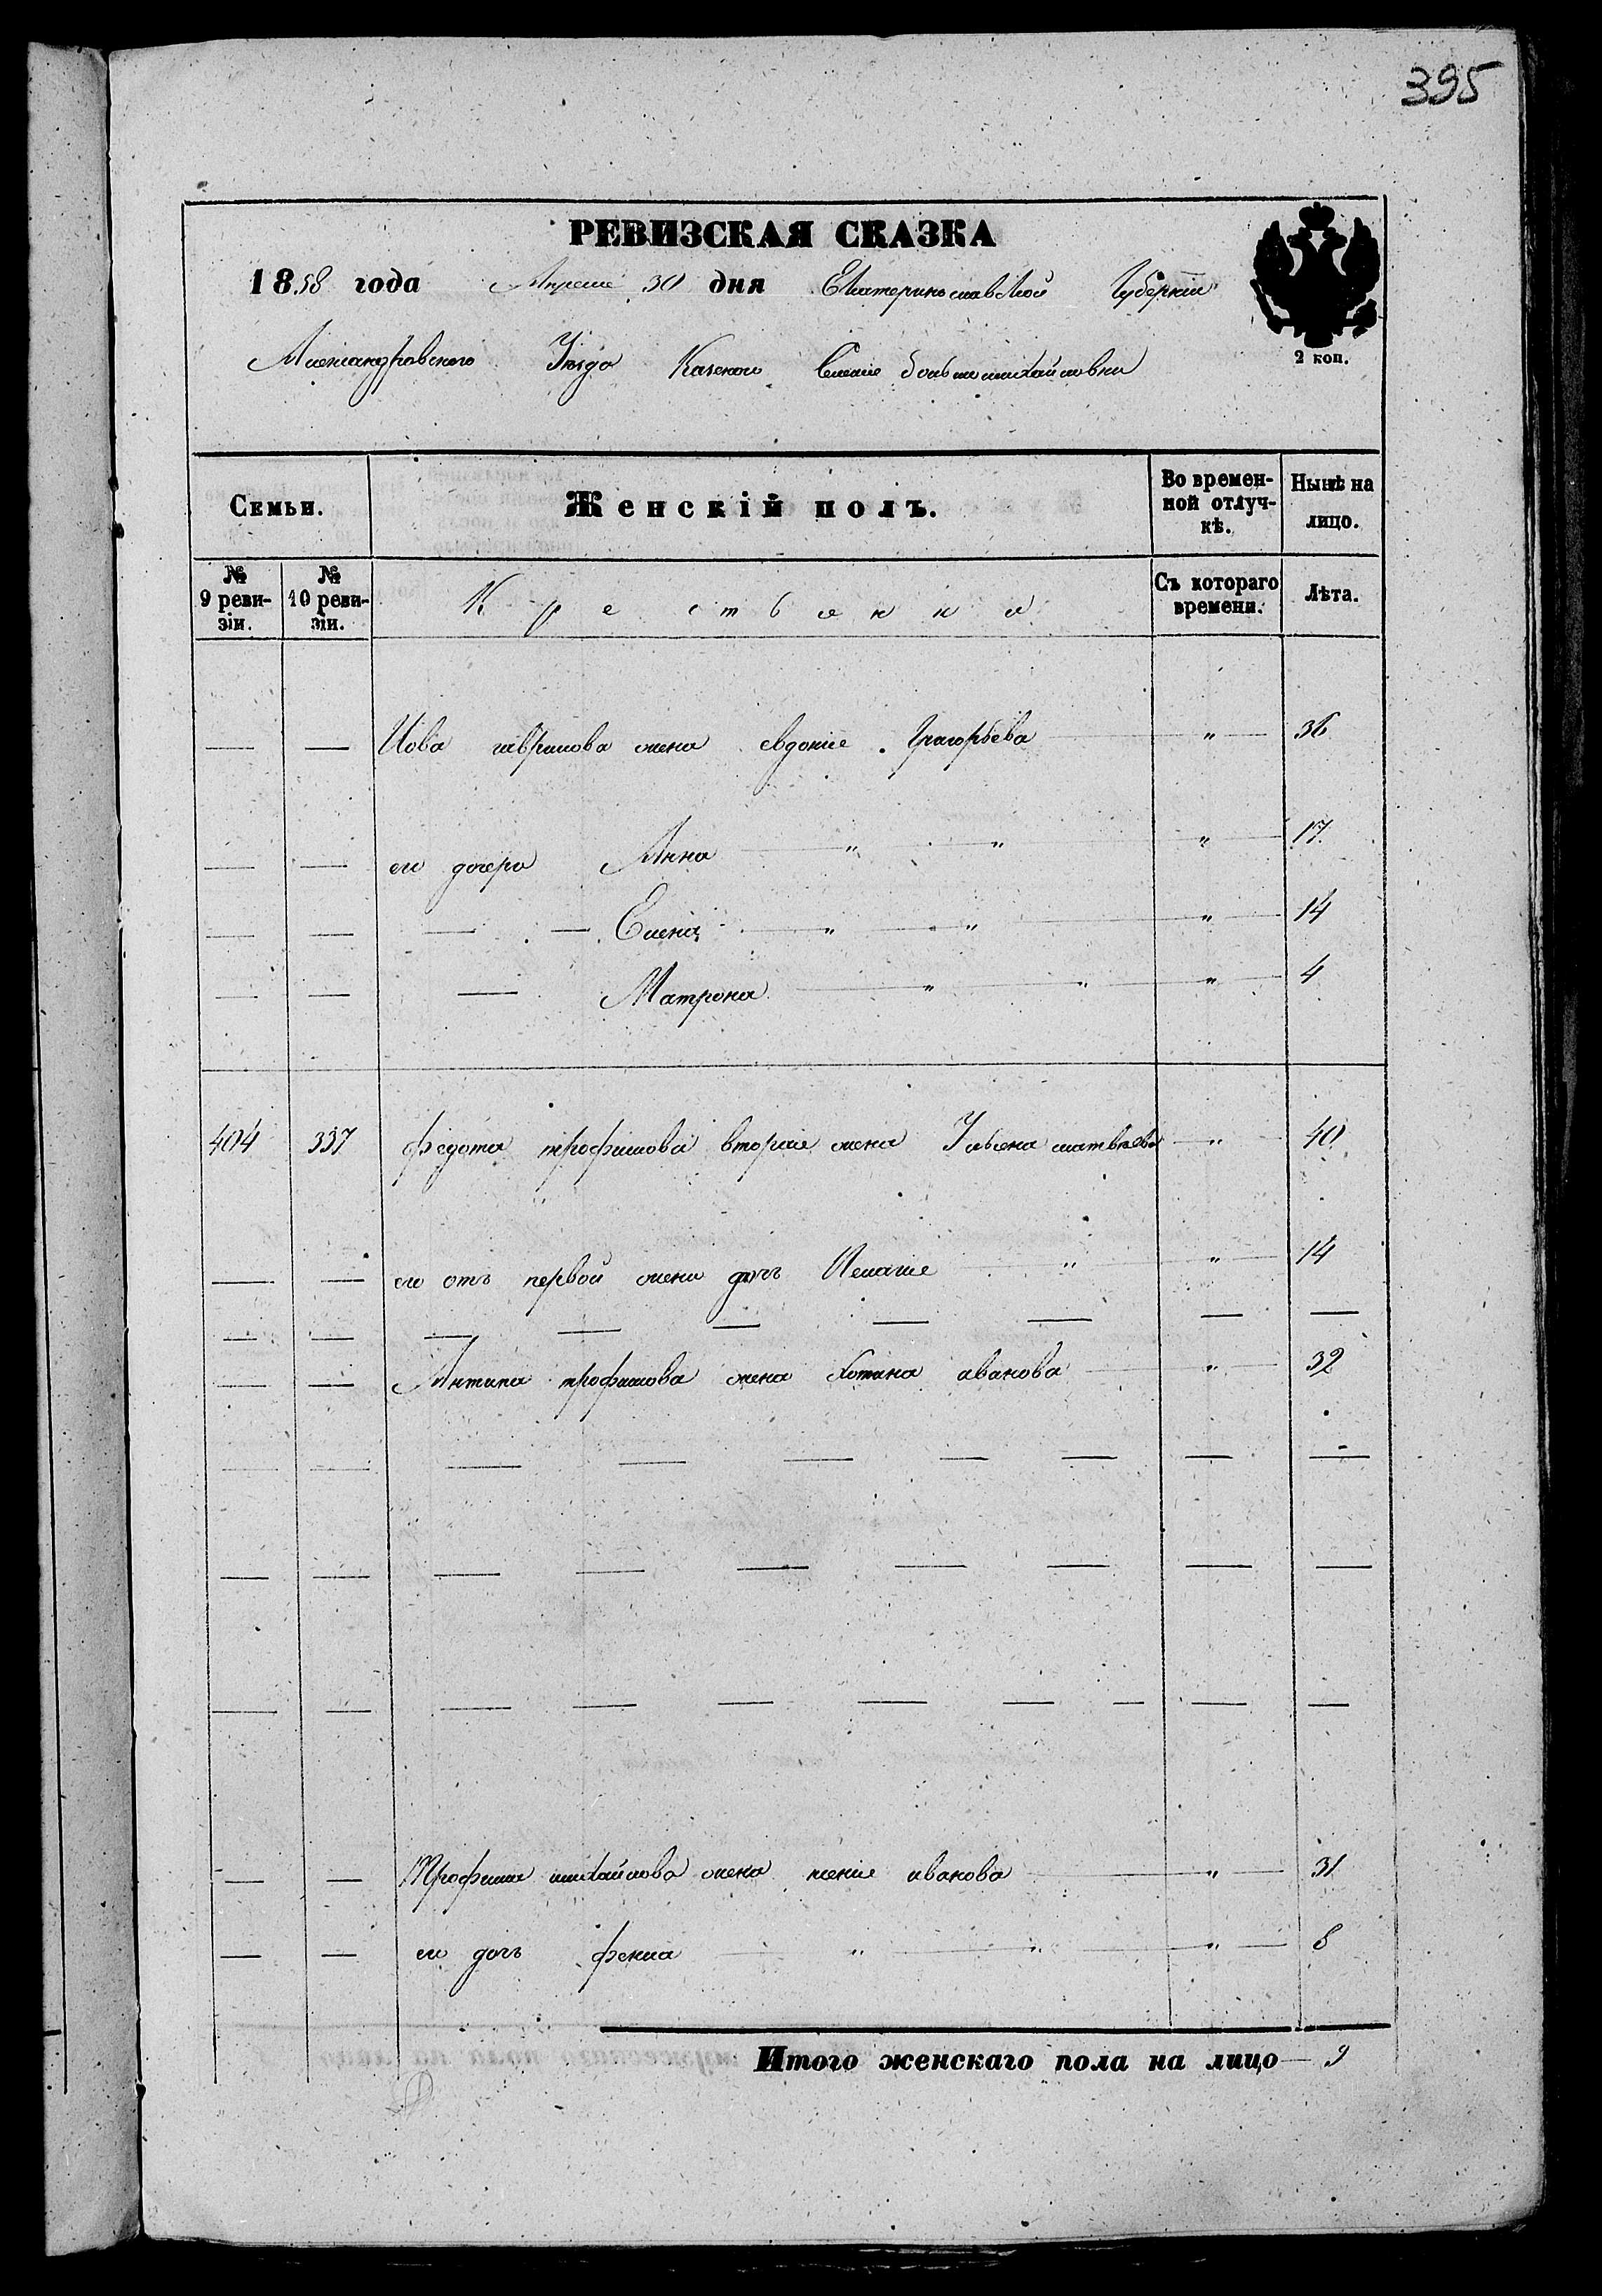 395
РЕВИЗСКАЯ СКАЗКА
1858 года Апреля 30 дня Екатеринославской Губернии
2 коп.
Александровского Уезда Казеной Селение большемихайловки
Семьи. Женскій полъ. Во времен-ной отлуч-кѣ. Нынѣ на лицо.
№ 9 реви-зіи. № 10 реви-зіи. Крестьянка Съ котораго времени. Лѣта.
— — Иова гаврилова жена евдокие Григорьева — " — 36
— — его дочери Анна — " — " — " — 17
— — — — Елена — " — " — " — 14
— — — Матрона — " — " — " — 4
404 337 федота трофимова вторая жена Ульяна матвѣева — " — 40
— — его отъ первой жени дочъ Пелагие — " — " — 14
— — Антипа трофимова жена иванова — " — 32
— — Трофима михайлова жена ксение иванова — " — 31
— — его дочъ фекла — " — " — " — 8
Итого женскаго пола на лицо — 9